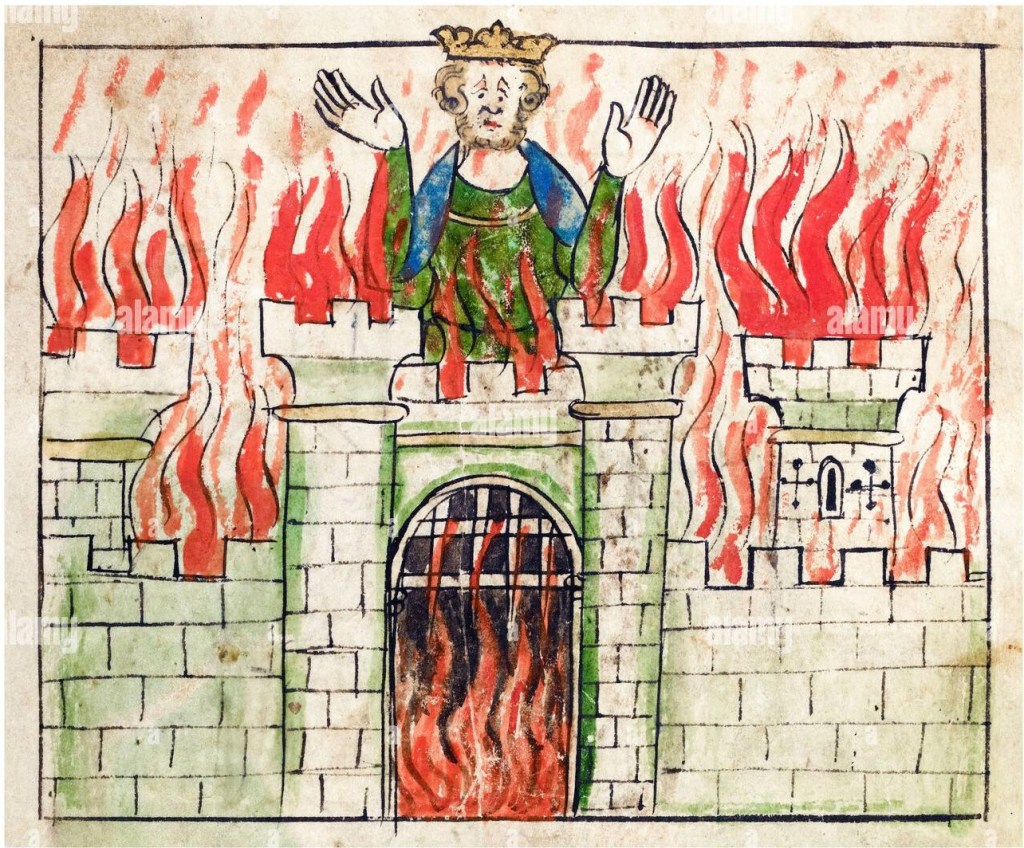 alamy
alamy
alamy
alamy
alamy
alamy
alamy
a
a
a
a
a
a
a
a
a
a